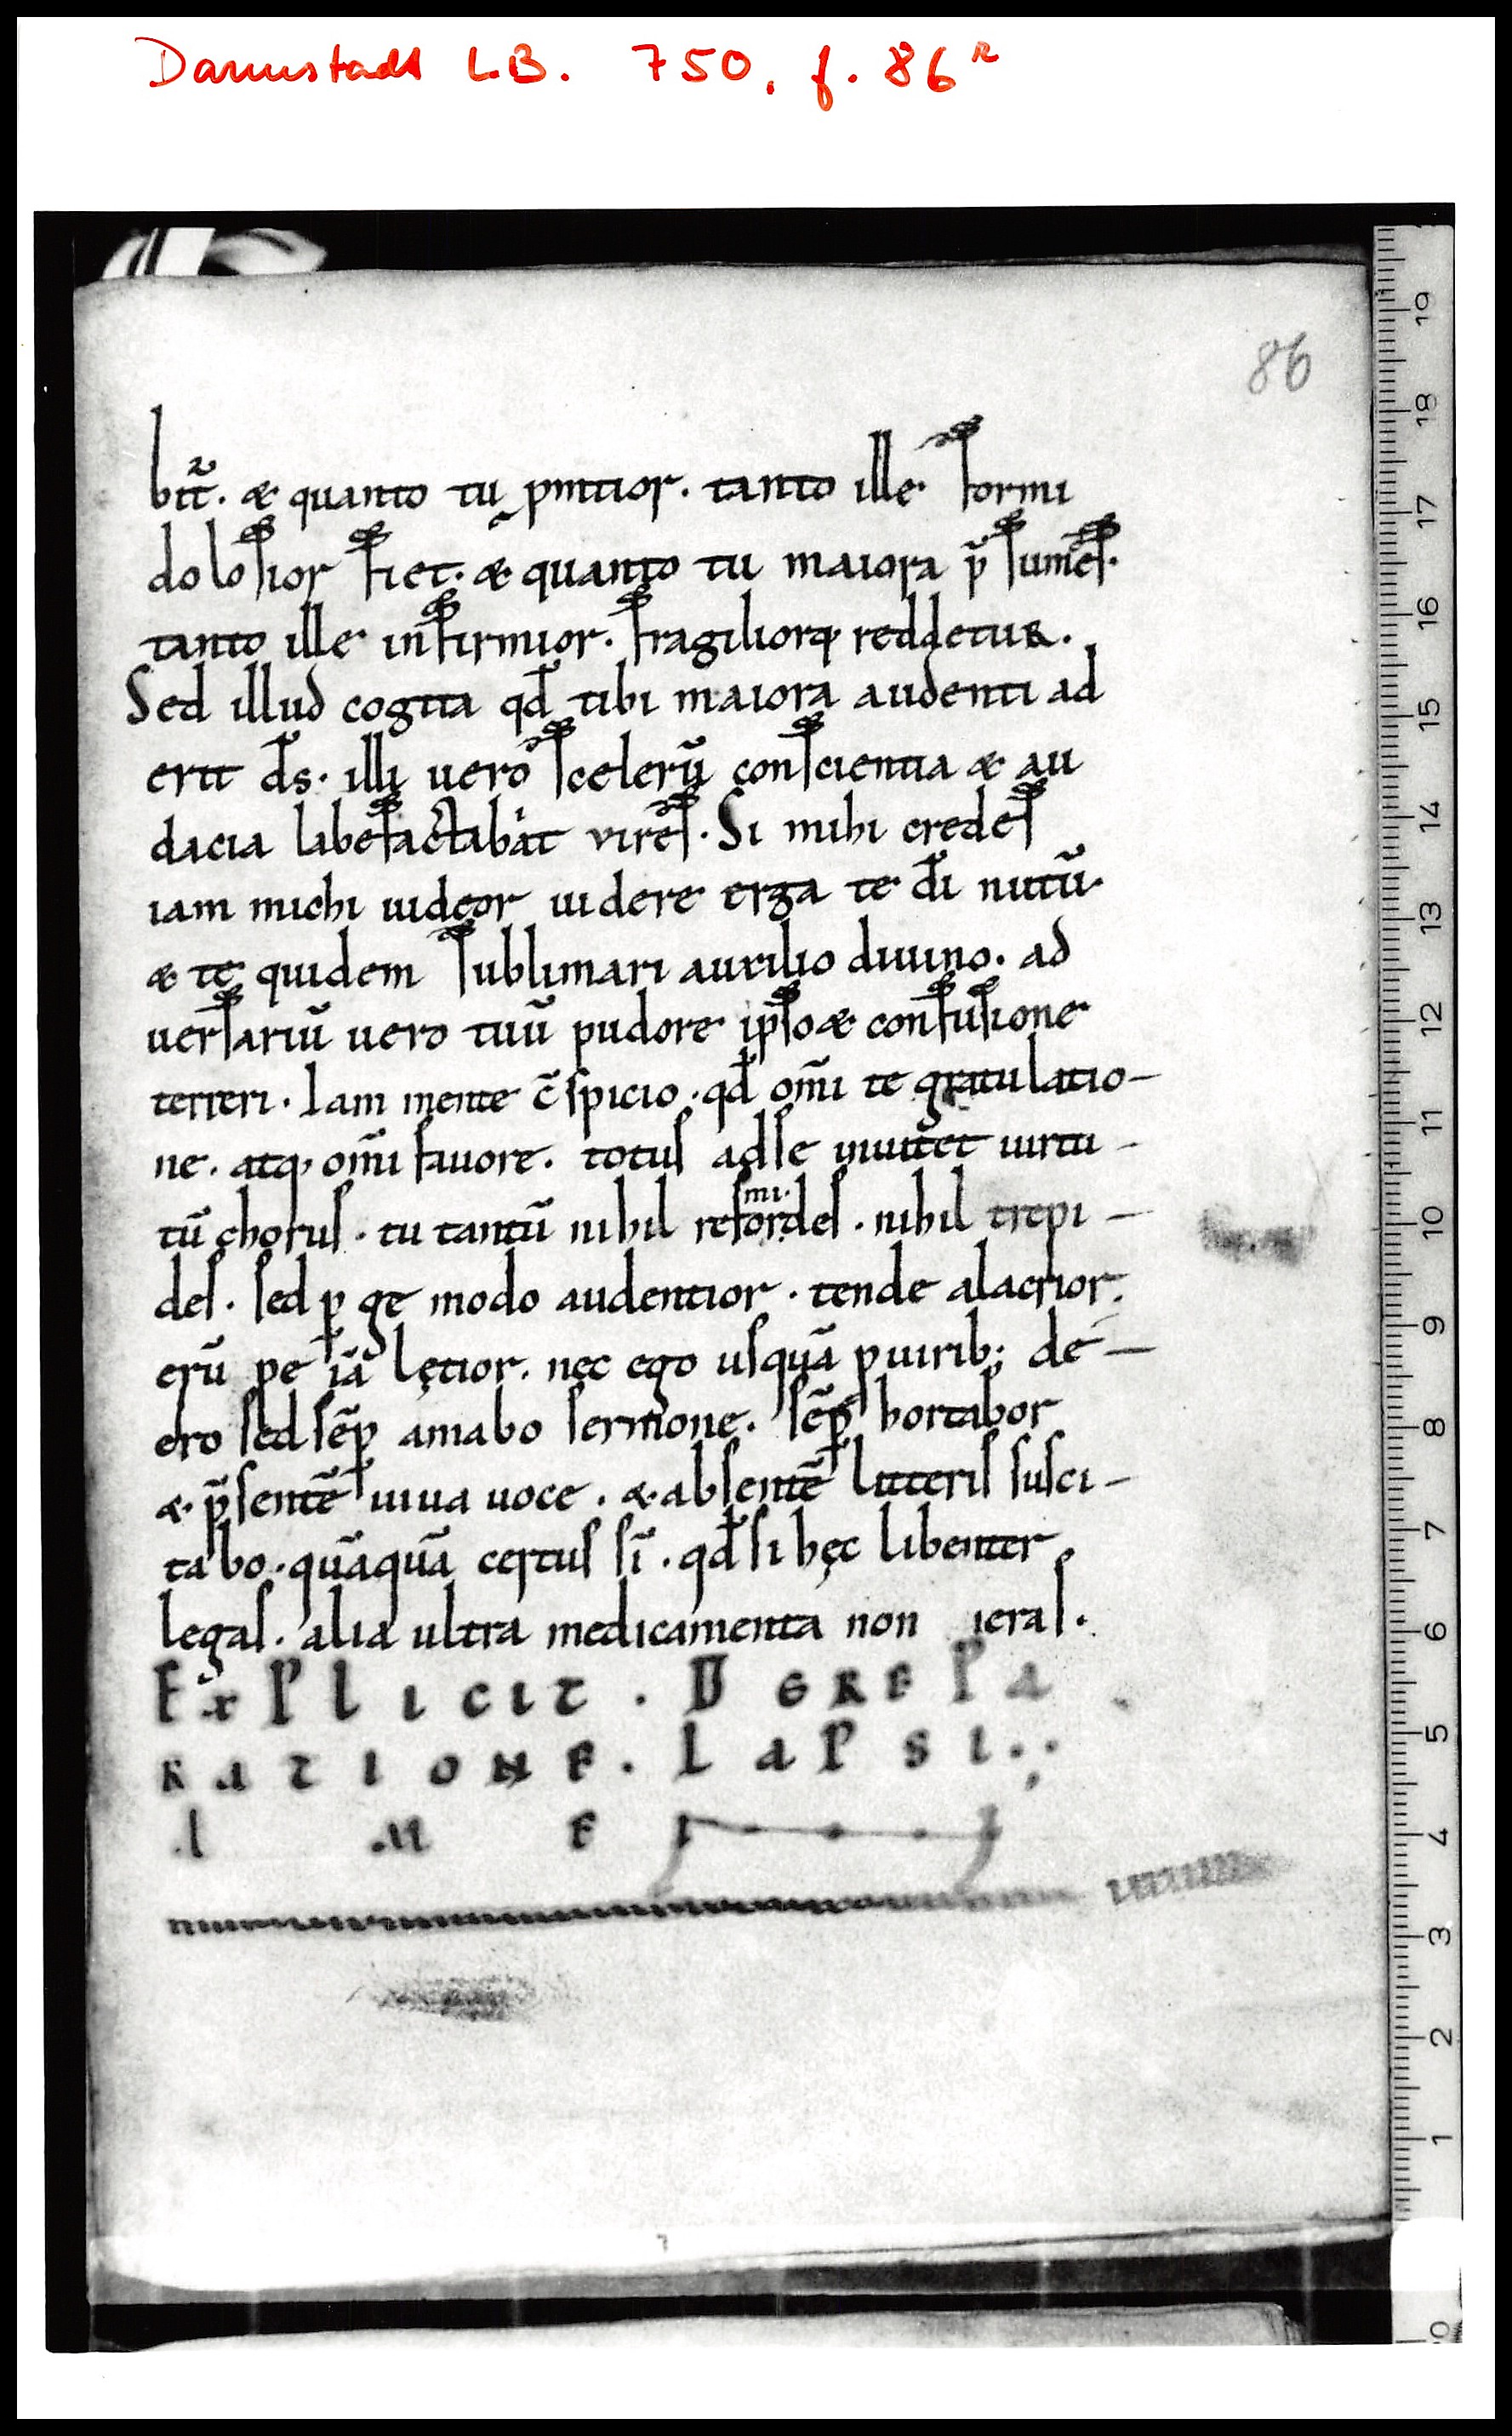 Darmstadt L.B. 750, f. 86r
86
bit̃. & quanto tu p̃ntior. tanto ille formi
dolosior fiet. & quanto tu maiora p̃sumes.
tanto ille infirmior. fragiliorq; reddetur.
Sed illud cogita qđ tibi maiora audenti ad
erit d̃s. illi uero scelerũ conscientia & au
dacia labefactabat vires. Si mihi credes
iam michi uideor uidere erga te di̅ nutũ
& te quidem sublimari auxilio diuino. ad
uersariũ uero tuũ pudore ipso & confusione
terreri. Iam mente c̃spicio. qđ om̃i te gratulatio-
ne. atq; om̃i fauore. totus adse inuitet uirtu-
tũ chorus. tu tantũ nihil resordes. nihil trepi-
mi.
des. sed p ge modo audentior. tende alacrior.
erũpe iã lętior. nec ego usquã p uirib; de-
ero sed sẽp amabo sermone. sẽp hortabor
& p̃sentẽ uiua uoce. & absentẽ litteris susci-
tabo. quãquã certus sĩ. qđ si hęc libenter
legas. alia ultra medicamenta non ieras.
Explicit. DEREPA
RATIONE. LAPSI.;
.I .M E
19
18
17
16
15
14
13
12
11
10
9
8
7
6
5
4
3
2
1
0